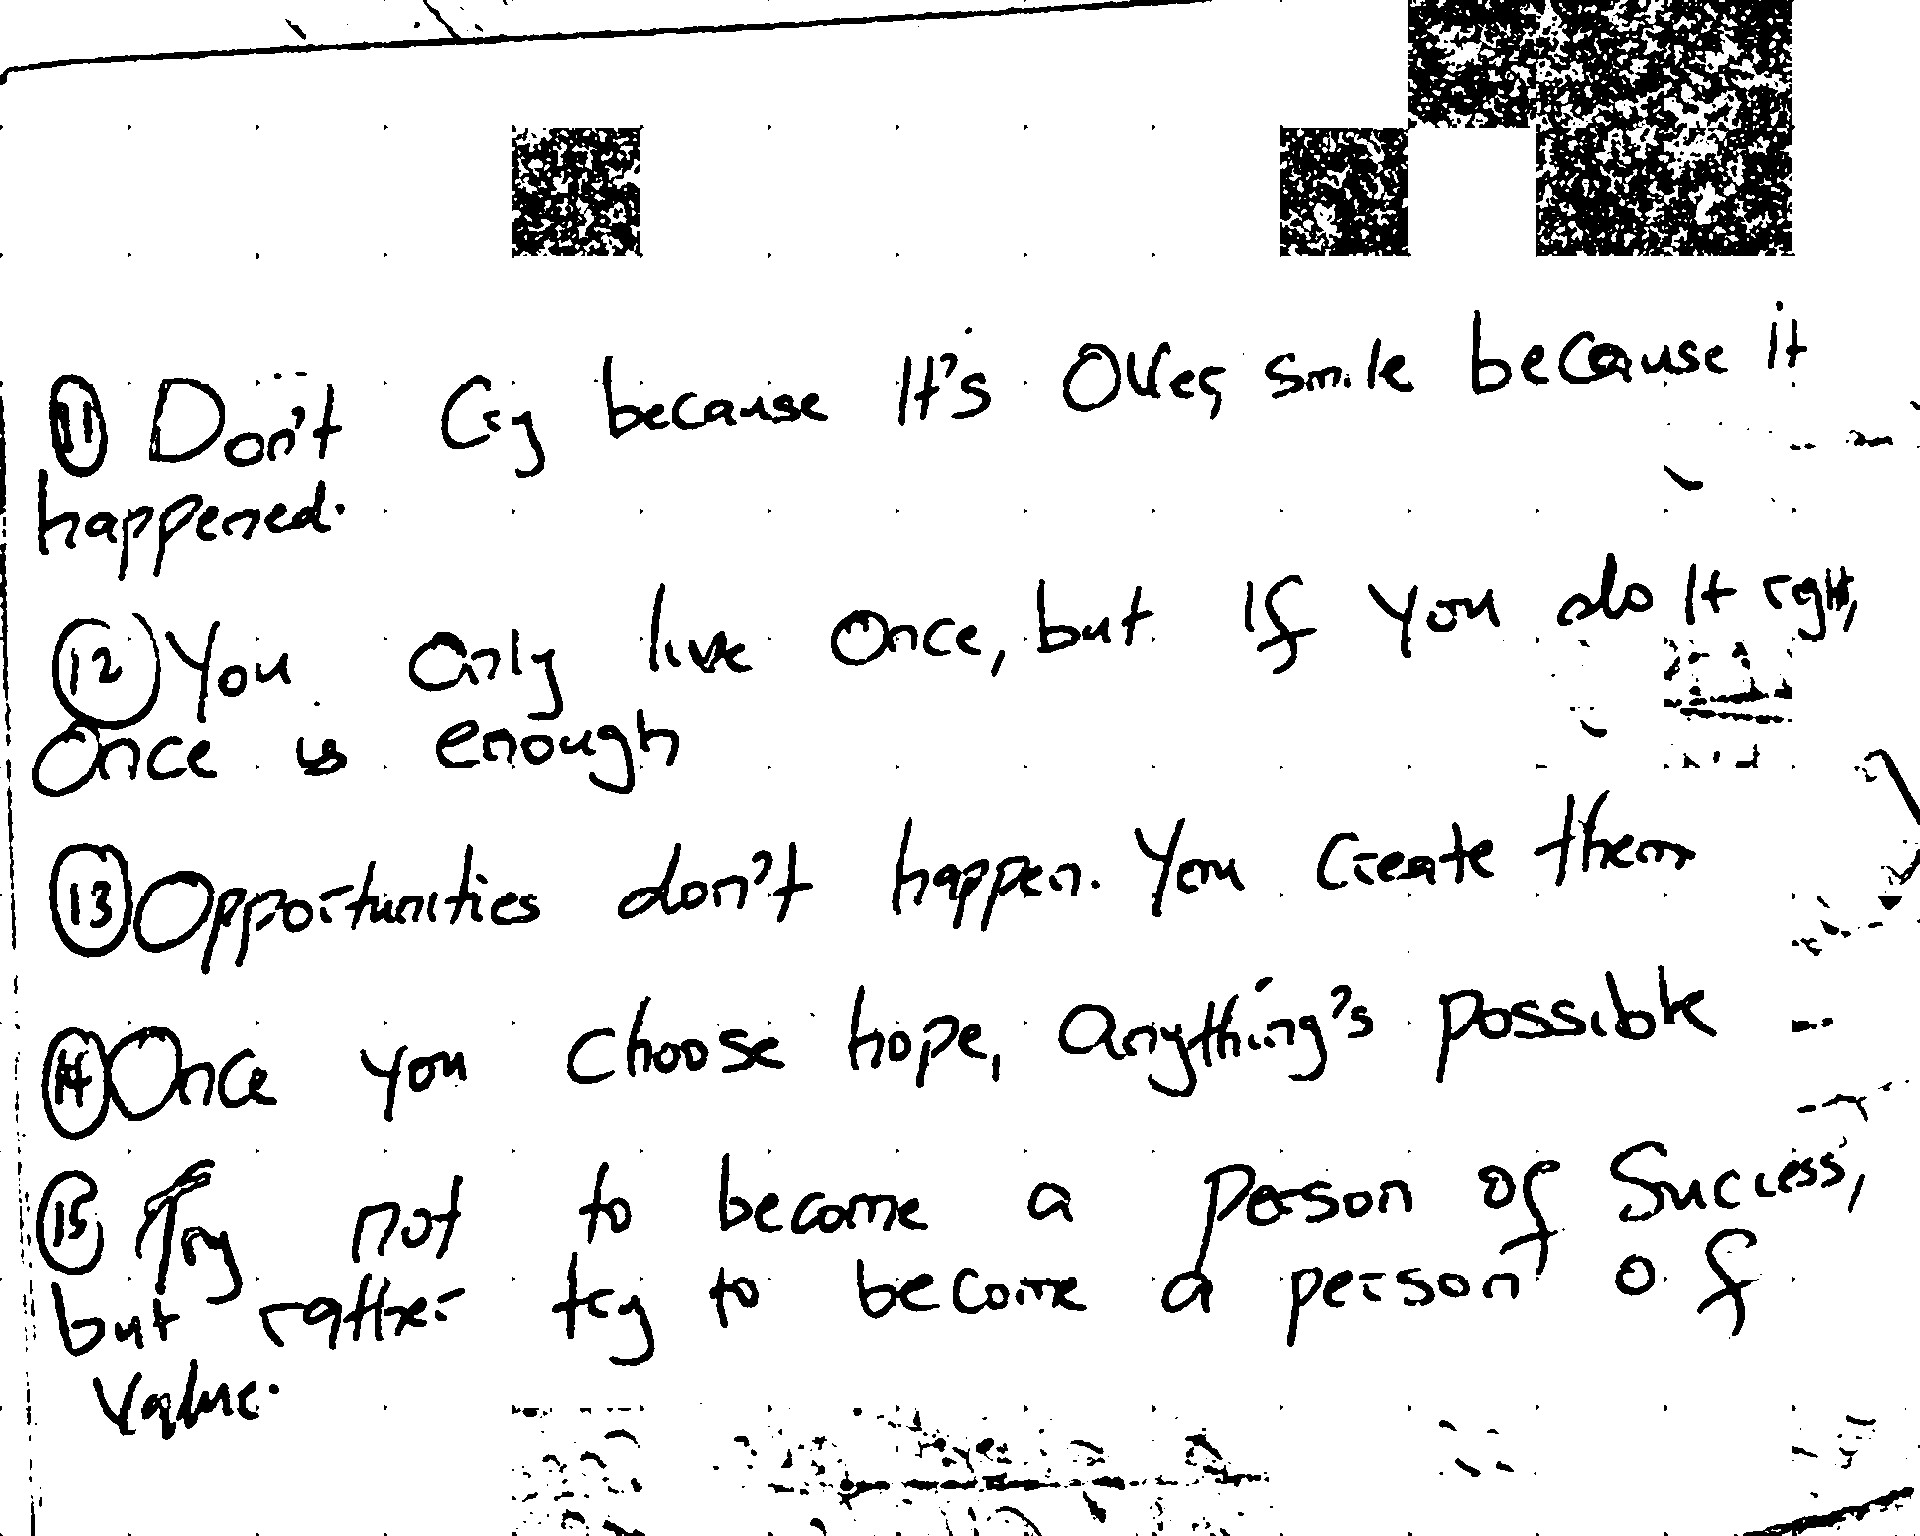 ⑪ Don't Cry because It's Over, smile because it
happened.
⑫ You only live Once, but If you do It right,
Once is enough
⑬ Opportunities don't happen. You create them
⑭ Once you choose hope, anything's possible
⑮ Try not to become a person of Success,
but rather try to become a person of
value.